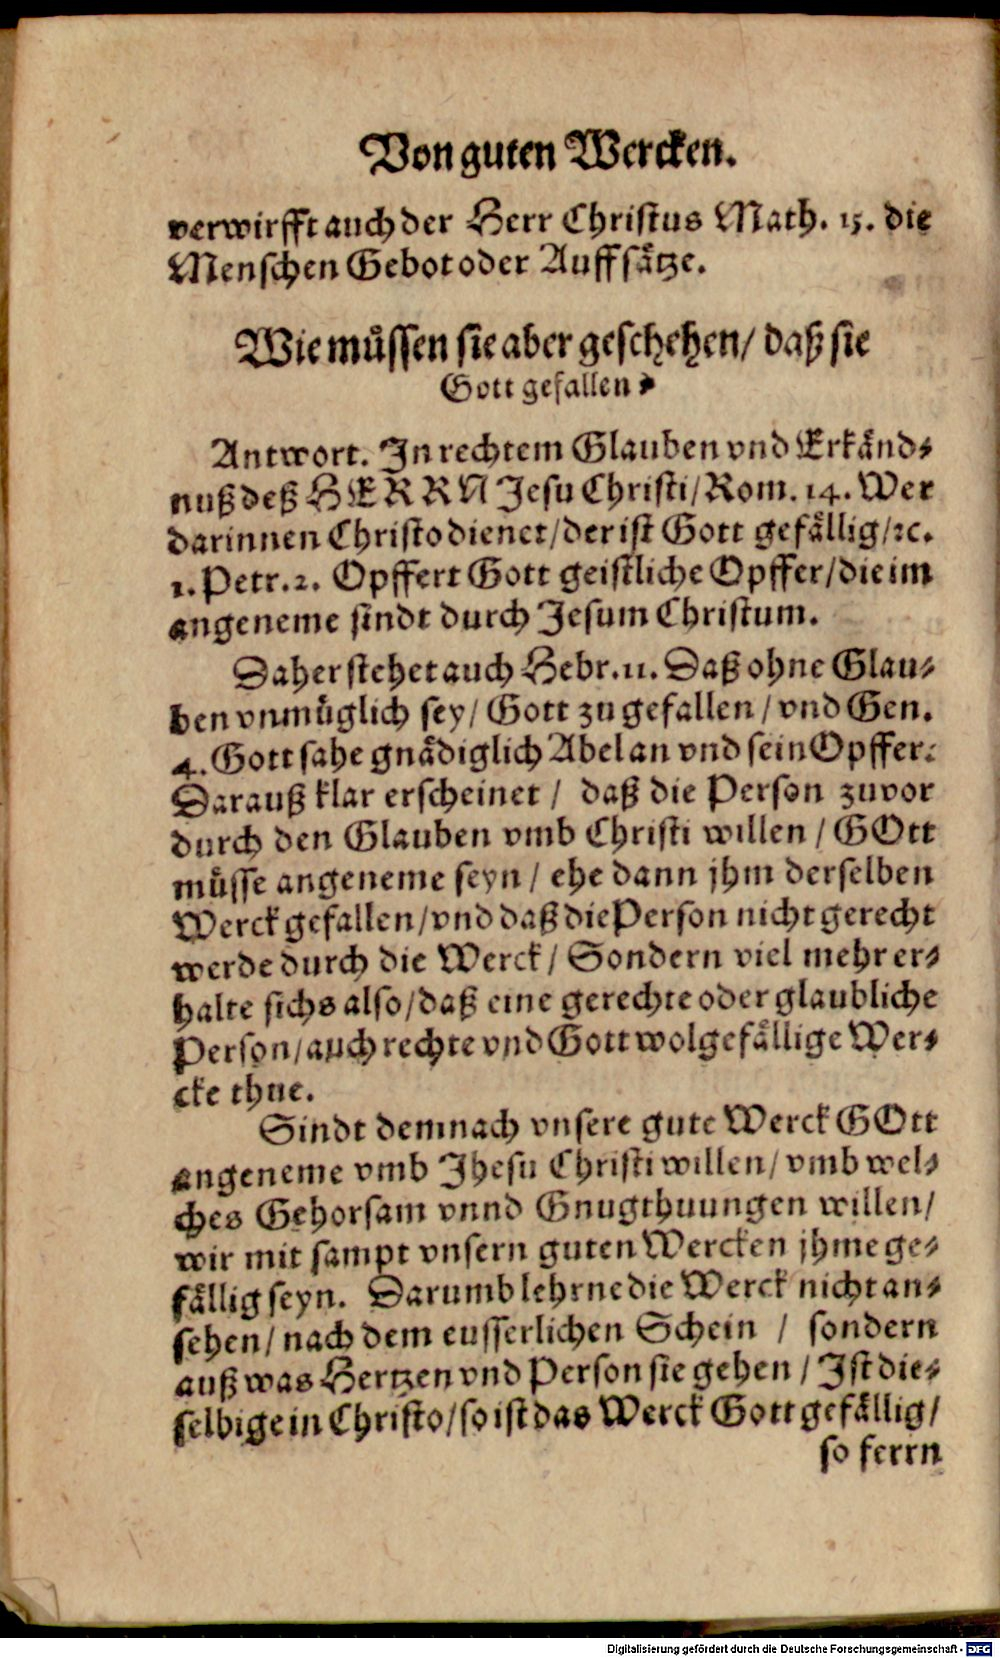 Von guten Wercken.
verwirfft auch der Herr Christus Math. 15. die
Menschen Gebot oder Auffsätze.
Wie müssen sie aber geschehen/ daß sie
Gott gefallen?
Antwort. In rechtem Glauben vnd Erkänd-
nuß deß HERRN Jesu Christi/ Rom. 14. Wer
darinnen Christo dienet/ der ist Gott gefällig/ ꝛc.
1. Petr. 2. Opffert Gott geistliche Opffer/ die im
angeneme sindt durch Jesum Christum.
Daher stehet auch Hebr. 11. Daß ohne Glau-
ben vnmüglich sey/ Gott zu gefallen/ vnd Gen.
4. Gott sahe gnädiglich Abel an vnd sein Opffer:
Darauß klar erscheinet/ daß die Person zuvor
durch den Glauben vmb Christi willen/ GOtt
müsse angeneme seyn/ ehe dann jhm derselben
Werck gefallen/ vnd daß die Person nicht gerecht
werde durch die Werck/ Sondern viel mehr er-
halte sichs also/ daß eine gerechte oder glaubliche
Person/ auch rechte vnd Gott wolgefällige Wer-
cke thue.
Sindt demnach vnsere gute Werck GOtt
angeneme vmb Jhesu Christi willen/ vmb wel-
ches Gehorsam vnnd Gnugthuungen willen/
wir mit sampt vnsern guten Wercken jhme ge-
fällig seyn. Darumb lehrne die Werck nicht an-
sehen/ nach dem eusserlichen Schein / sondern
auß was Hertzen vnd Person sie gehen/ Ist die-
selbige in Christo/ so ist das Werck Gott gefällig/
so ferrn
Digitalisierung gefördert durch die Deutsche Forschungsgemeinschaft - DFG